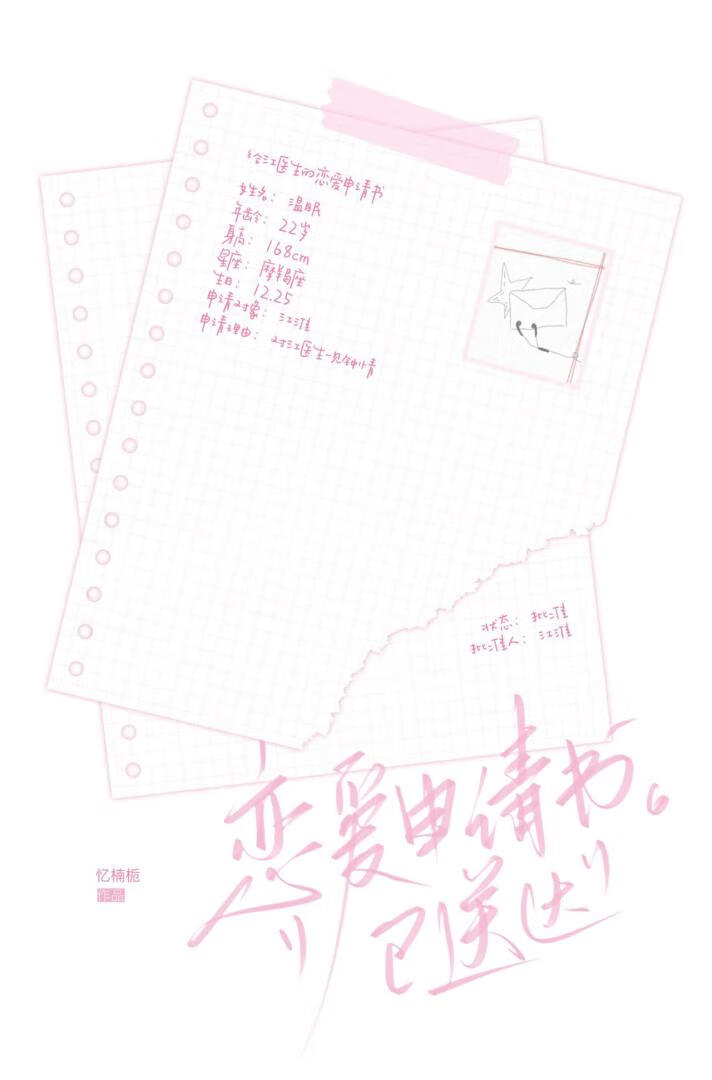 给江医生的恋爱申请书
姓名：温眠
年龄：22岁
身高：168cm
星座：摩羯座
生日：12.25
申请对象：江淮
申请理由：对江医生一见钟情
状态：批准
批准人：江淮
恋爱申请书。
已送达
忆楠栀
作品